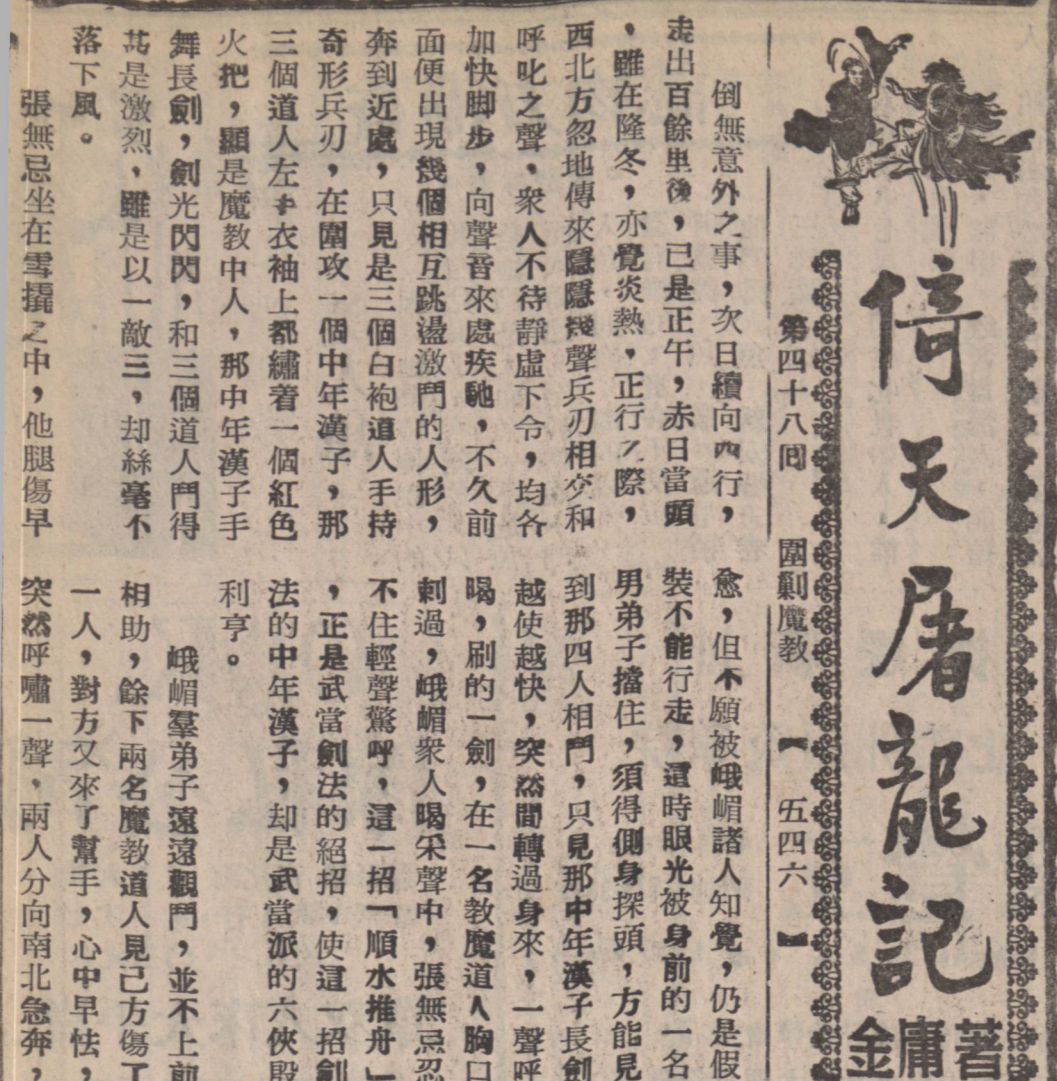 倚天屠龍記
金庸著
第四十八回 圍剿魔教 【五四六】
倒無意外之事，次日續向西行，
走出百餘里後，已是正午，赤日當頭
，雖在隆冬，亦覺炎熱，正行之際，
西北方忽地傳來隱隱幾聲兵刃相交和
呼叱之聲，衆人不待靜虛下令，均各
加快脚步，向聲音來處疾馳，不久前
面便出現幾個相互跳盪激鬥的人形，
奔到近處，只見是三個白袍道人手持
奇形兵刃，在圍攻一個中年漢子，那
三個道人左手衣袖上都繡着一個紅色
火把，顯是魔教中人，那中年漢子手
舞長劍，劍光閃閃，和三個道人鬥得
甚是激烈，雖是以一敵三，却絲毫不
落下風。
張無忌坐在雪撬之中，他腿傷早
愈，但不願被峨嵋諸人知覺，仍是假
裝不能行走，這時眼光被身前的一名
男弟子擋住，須得側身探頭，方能見
到那四人相鬥，只見那中年漢子長劍
越使越快，突然間轉過身來，一聲呼
喝，刷的一劍，在一名教魔道人胸口
刺過，峨嵋衆人喝采聲中，張無忌忍
不住輕聲驚呼，這一招「順水推舟」
，正是武當劍法的絕招，使這一招劍
法的中年漢子，却是武當派的六俠殷
利亨。
峨嵋羣弟子遠遠觀鬥，並不上前
相助，餘下兩名魔教道人見己方傷了
一人，對方又來了幫手，心中早怯，
突然呼嘯一聲，兩人分向南北急奔，